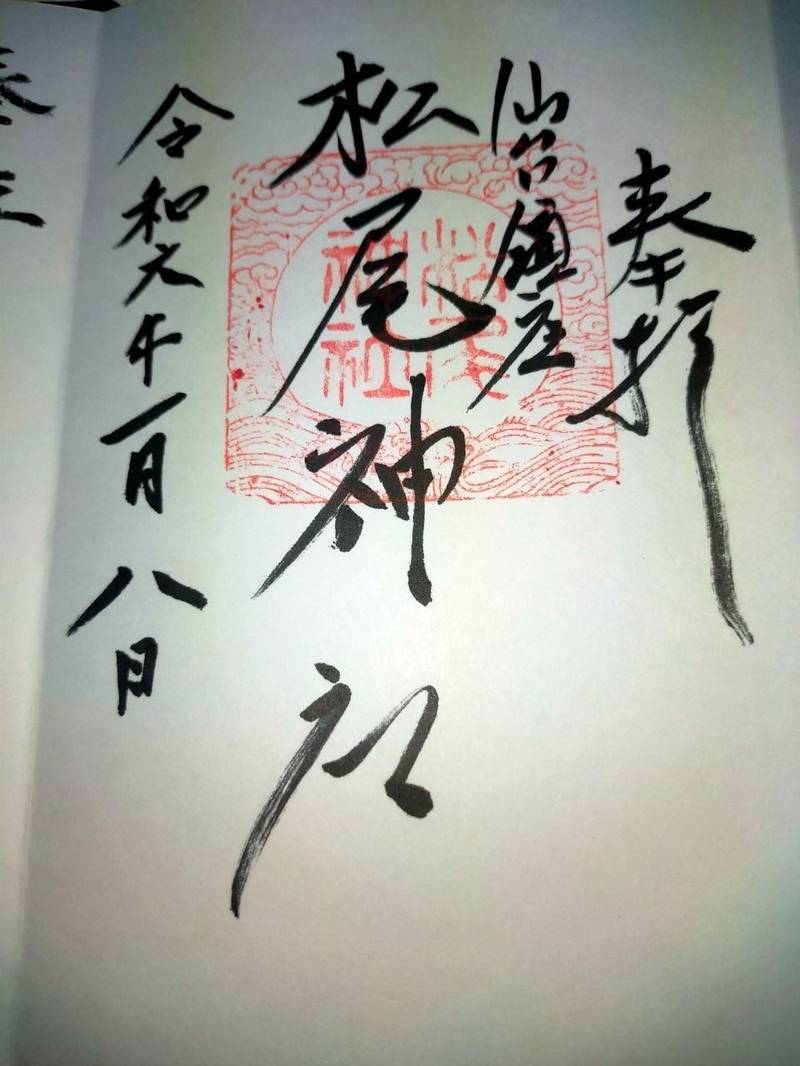 奉拝
仙台鎮座
松尾神社
松尾
神社
令和六年一月八日